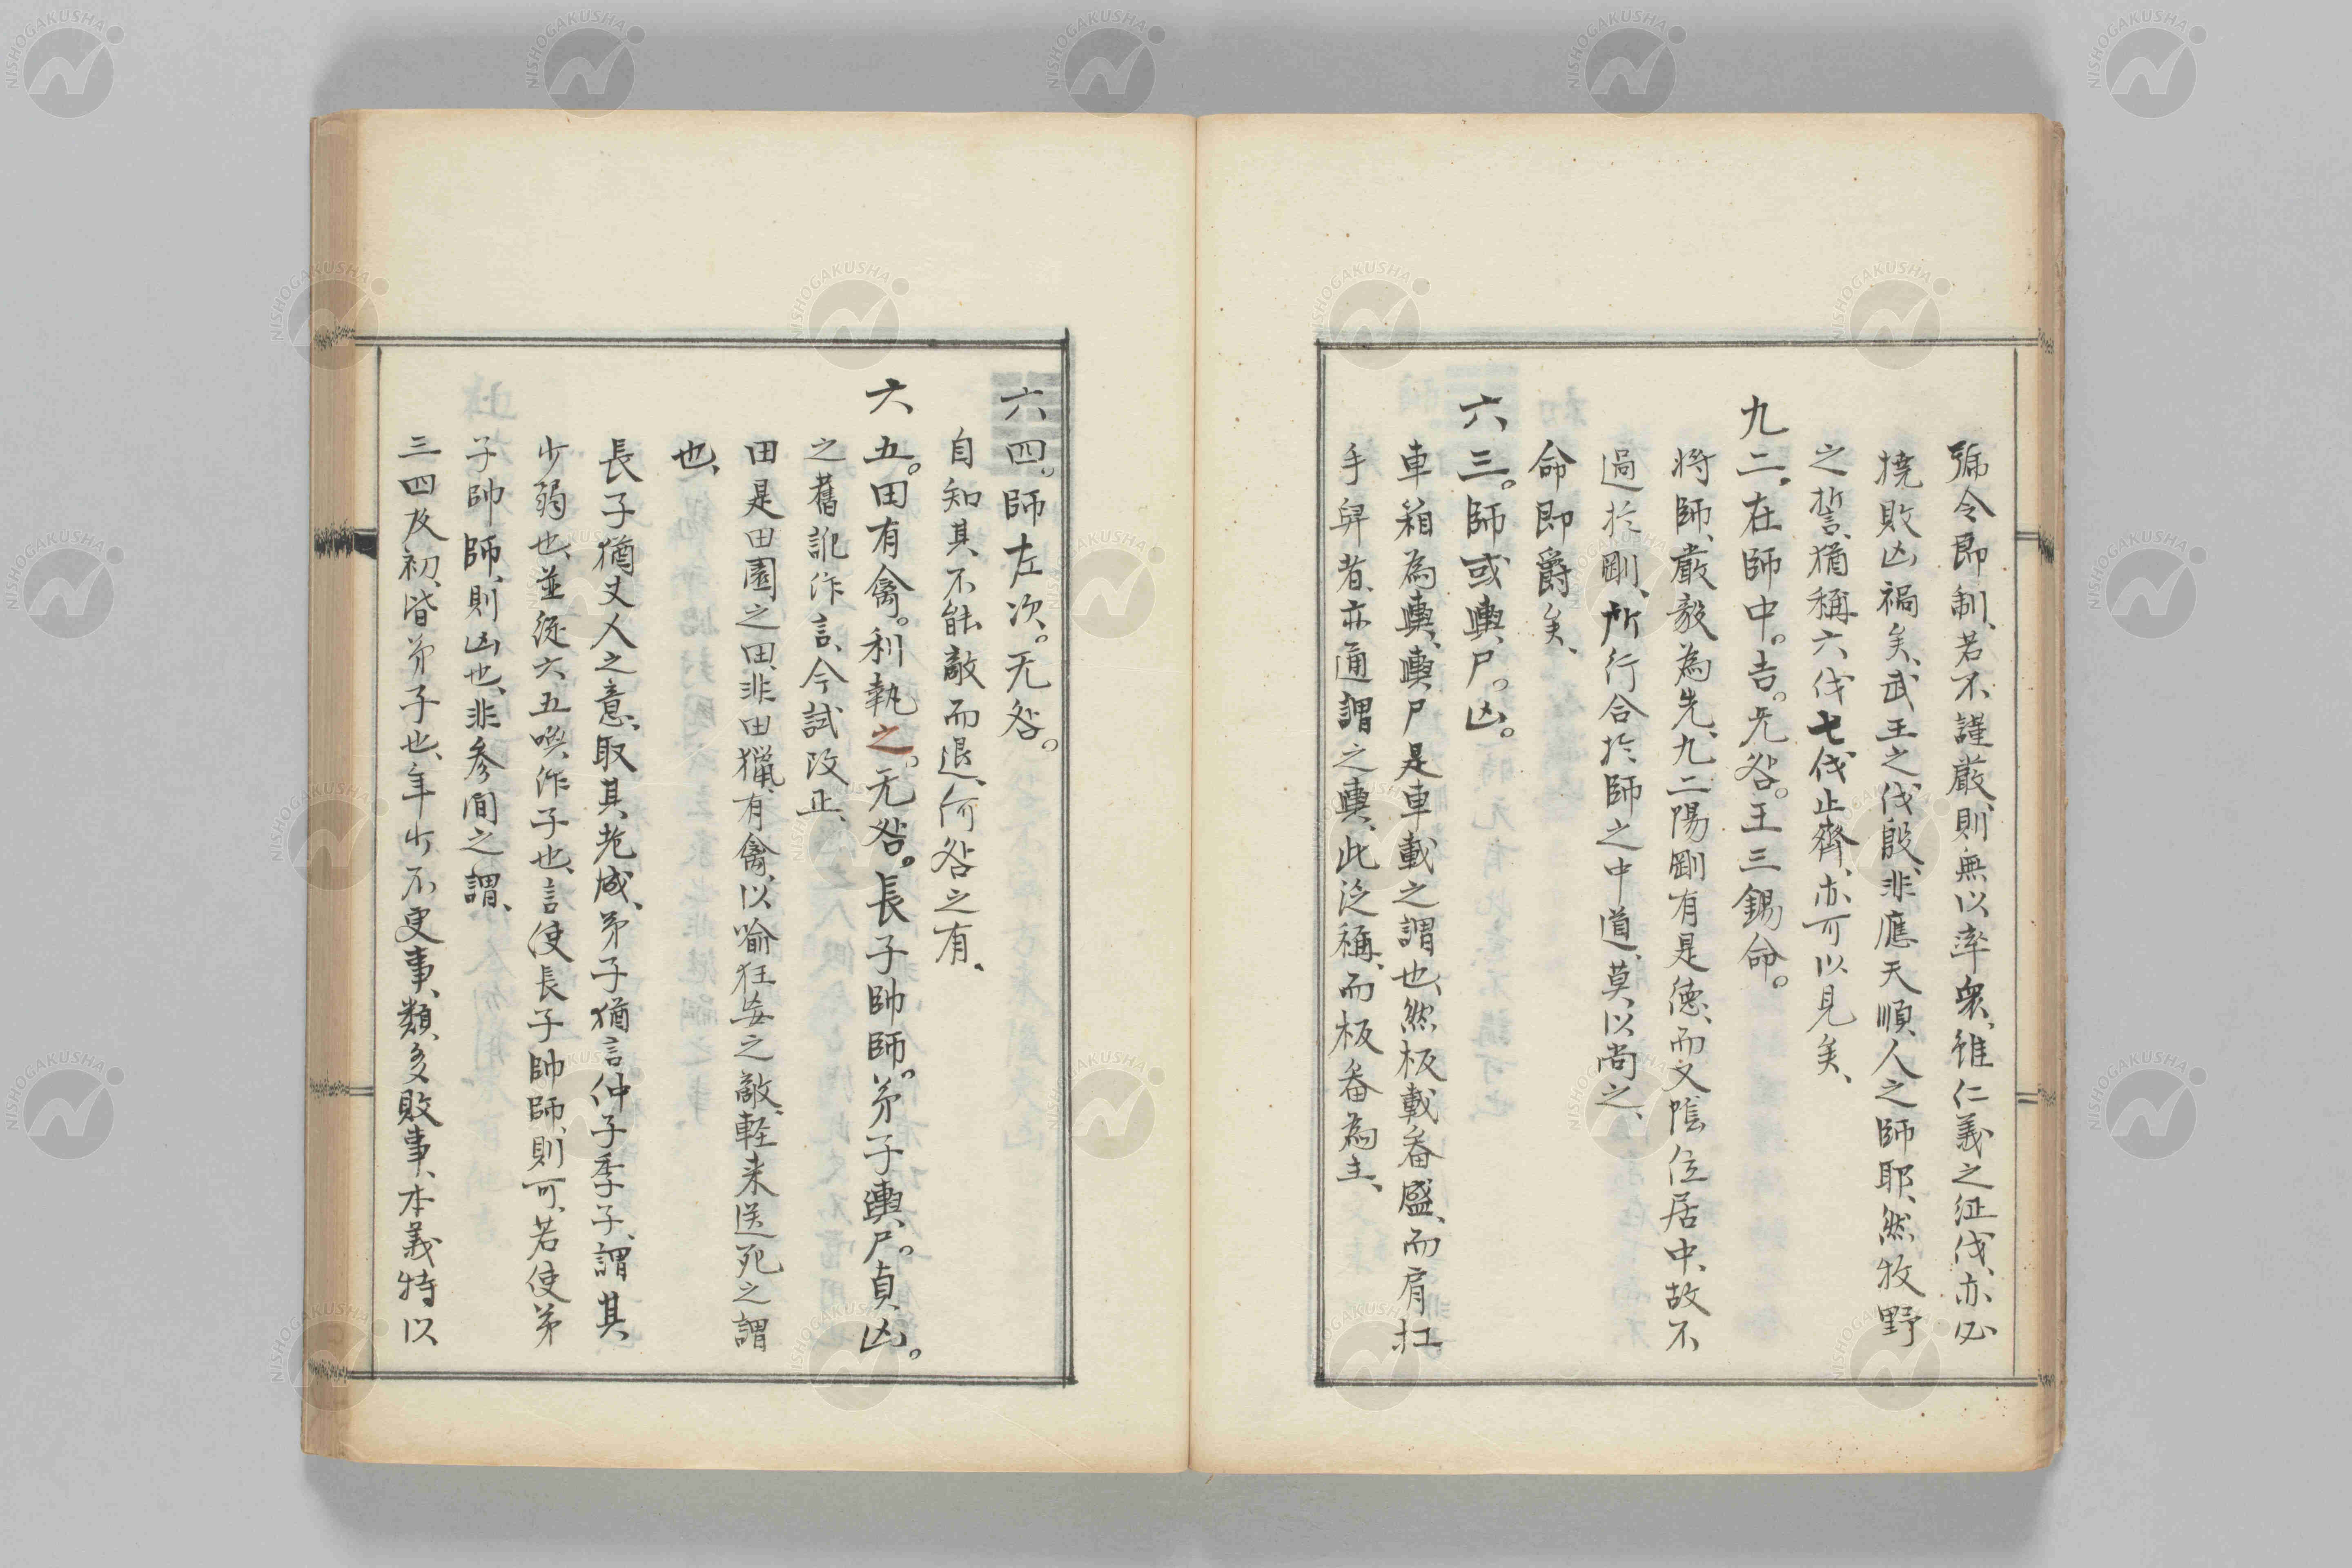 號令即制、若不謹嚴、則無以率衆、雖仁義之征伐、亦必
撓敗凶禍矣、武王之伐殷、非應天順人之師耶、然牧野
之誓、猶稱六伐七伐止齊、亦可以見矣、
九二。在師中。吉。无咎。王三錫命。
將師、嚴毅為先、九二陽剛有是德、而又陰位居中、故不
過於剛、所行合於師之中道、莫以尚之、
命即爵矣、
六三。師或輿尸。凶。
車箱為輿、輿尸是車載之謂也、然板載畚盛、而肩扛
手舁者、亦通謂之輿、此泛稱、而板畚為主、
六四。師左次。无咎。
自知其不能敵而退、何咎之有、
六五。田有禽。利執之。无咎。長子帥師。弟子輿尸。貞凶。
之舊訛作言、今試改止、
田是田園之田、非田獵、有禽、以喻狂妄之敵、軽来送死之謂
也、
長子猶丈人之意、取其老成、弟子猶言仲子季子、謂其
少弱也、並従六五喚作子也、言使長子帥師、則可、若使弟
子帥師、則凶也、非参間之謂、
三四及初、皆弟子也、年少不更事、類多敗事、本義特以
NISHOGAKUSHA